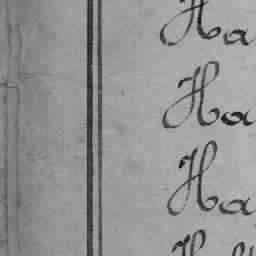 Ha
Ha
Ha
H